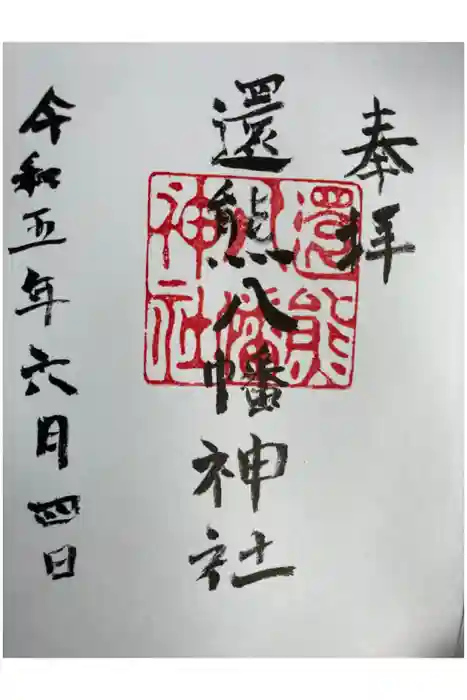 奉拝
還熊八幡神社
還熊八幡神社
令和五年六月四日